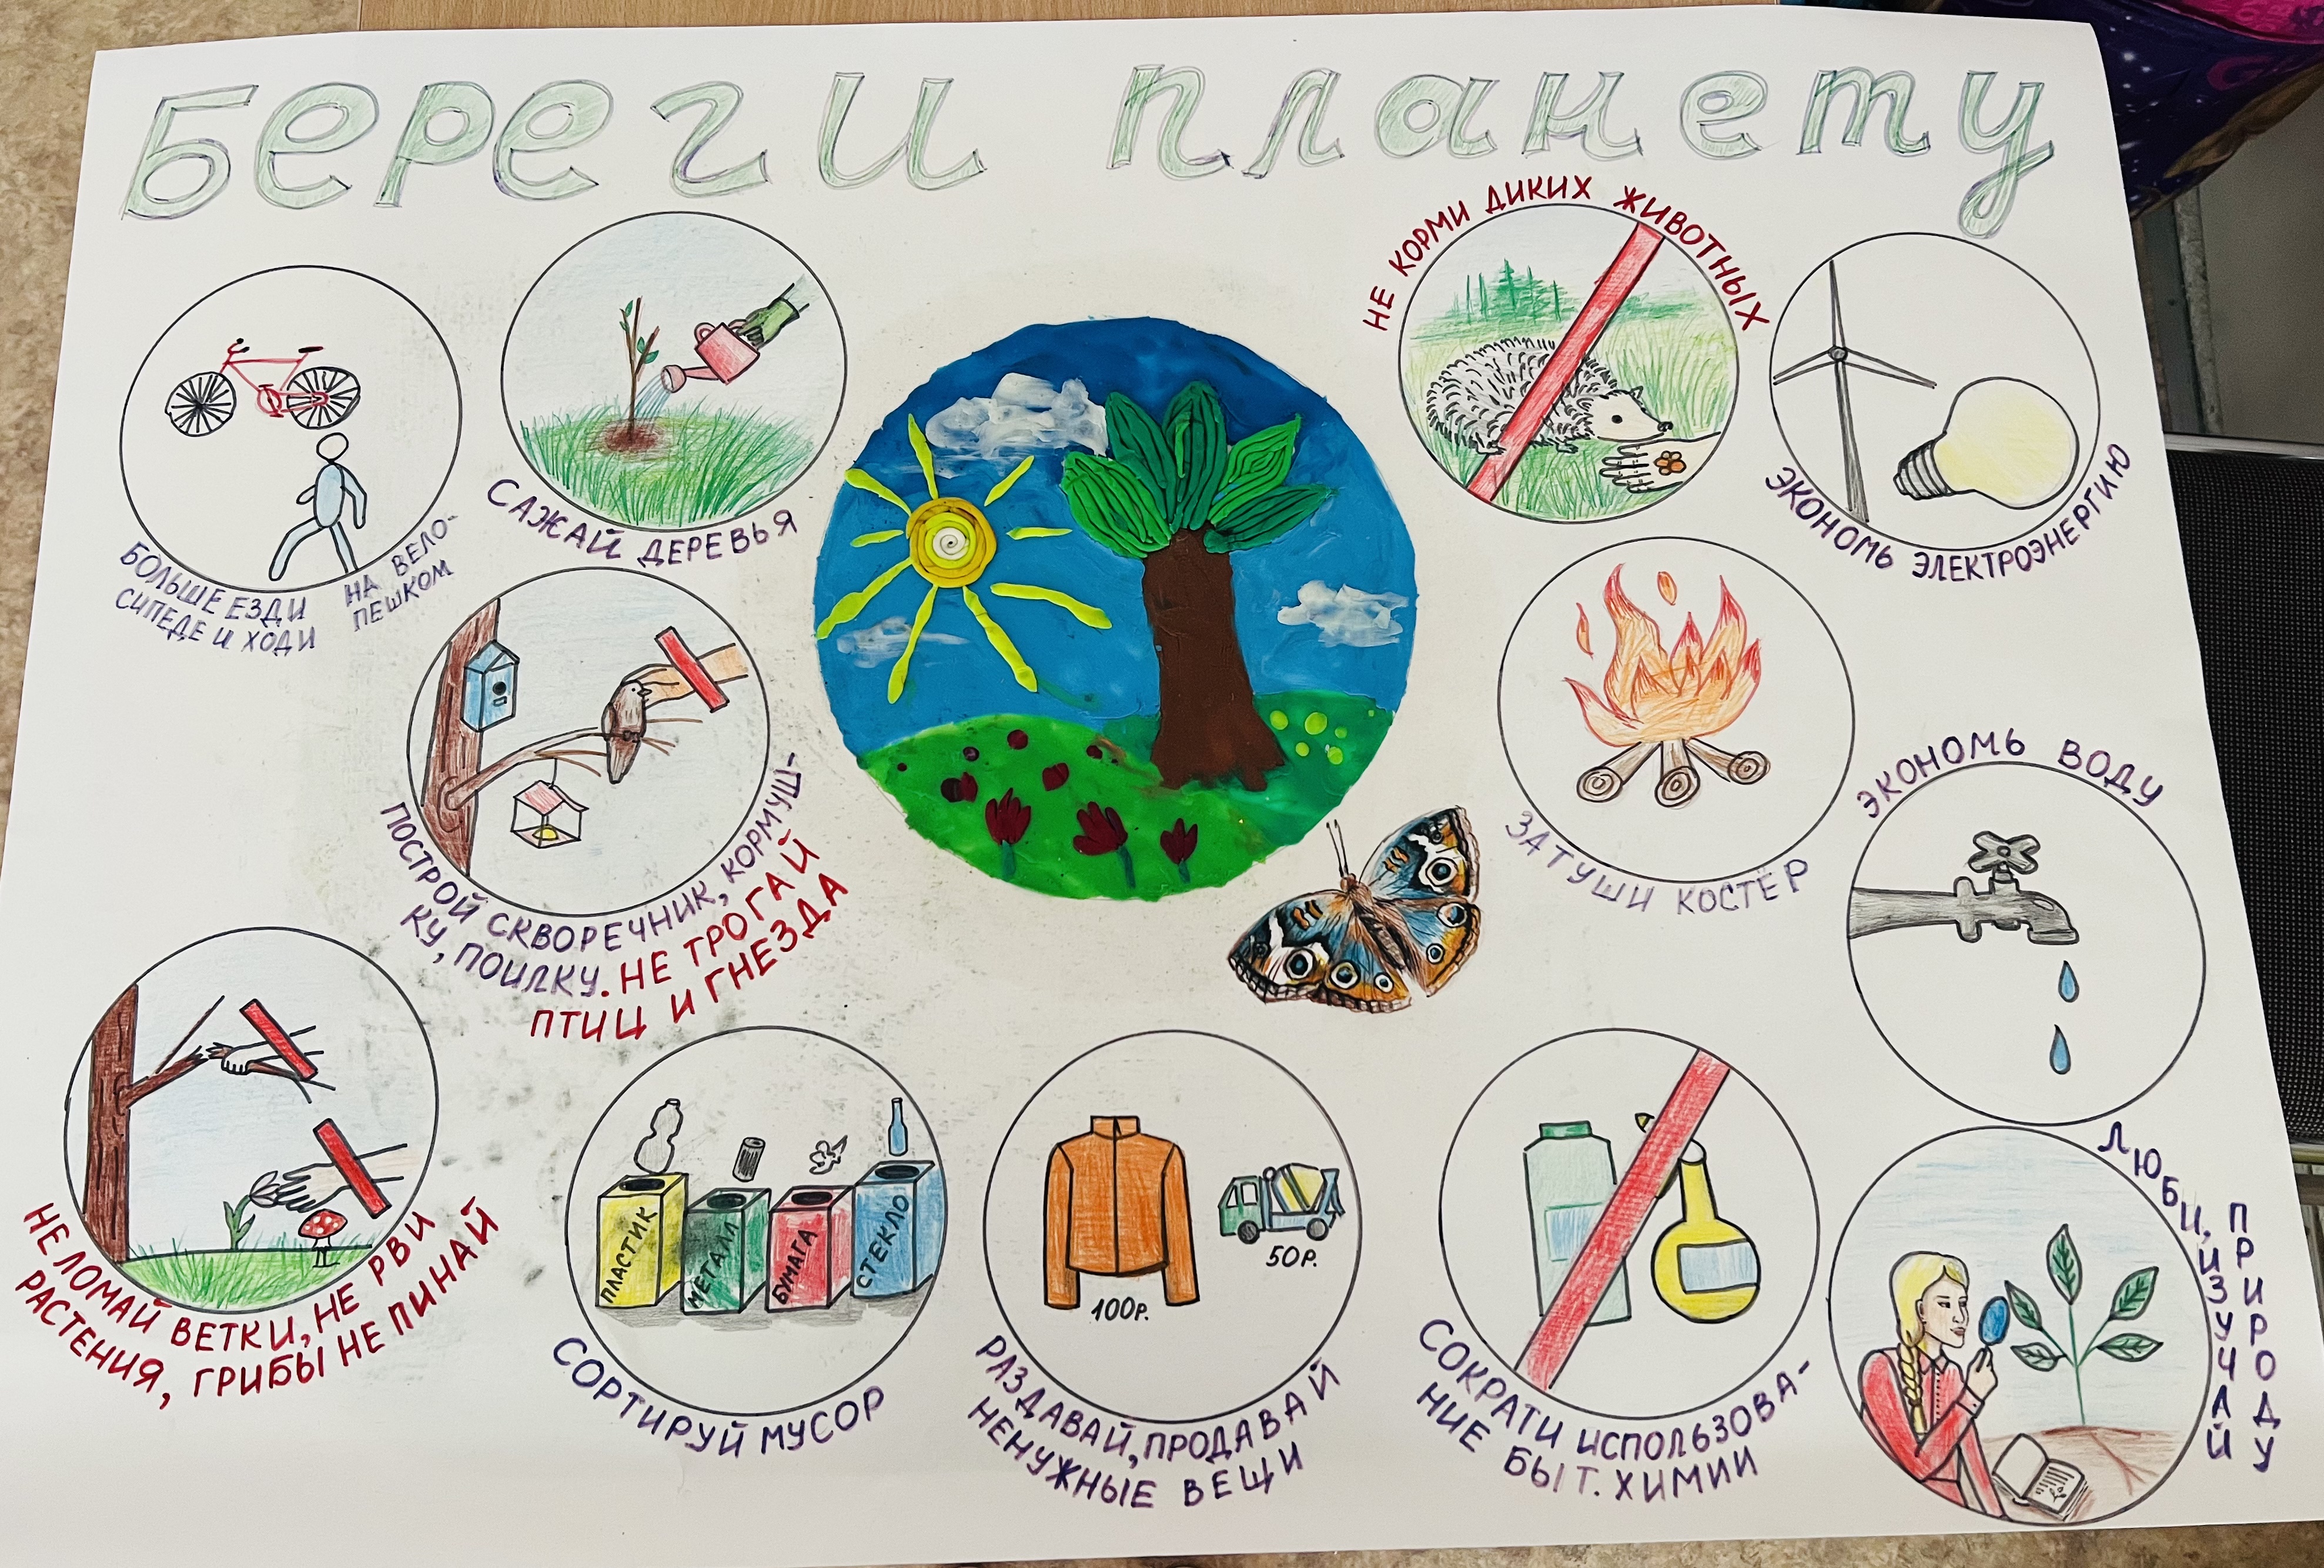 Береги планету
НЕ КОРМИ ДИКИХ ЖИВОТНЫХ
БОЛЬШЕ ЕЗДИ НА ВЕЛО-
СИПЕДЕ И ХОДИ ПЕШКОМ
САЖАЙ ДЕРЕВЬЯ
ЭКОНОМЬ ЭЛЕКТРОЭНЕРГИЮ
ПОСТРОЙ СКВОРЕЧНИК, КОРМУШ-
КУ, ПОИЛКУ. НЕ ТРОГАЙ
ПТИЦ И ГНЕЗДА
ЗАТУШИ КОСТЁР
ЭКОНОМЬ ВОДУ
НЕ ЛОМАЙ ВЕТКИ, НЕ РВИ
РАСТЕНИЯ, ГРИБЫ НЕ ПИНАЙ
ПЛАСТИК
МЕТАЛЛ
БУМАГА
СТЕКЛО
СОРТИРУЙ МУСОР
100Р.
50Р.
РАЗДАВАЙ, ПРОДАВАЙ
НЕНУЖНЫЕ ВЕЩИ
СОКРАТИ ИСПОЛЬЗОВА-
НИЕ БЫТ. ХИМИИ
ЛЮБИ, ИЗУЧАЙ
ПРИРОДУ